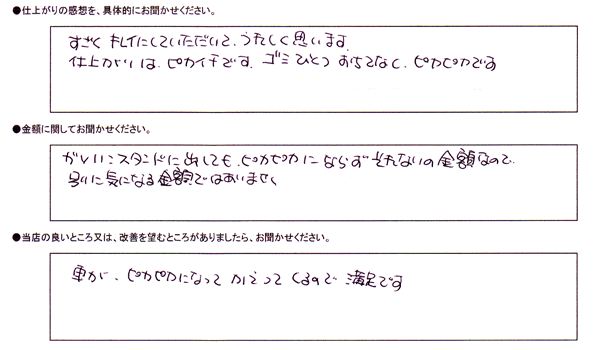 ●仕上がりの感想を、具体的にお聞かせください。
すごく キレイにしていただいて、うれしく思います。
仕上がりは、ピカイチです。ゴミひとつ おちてなく、ピカピカです
●金額に関してお聞かせください。
ガソリンスタンドに出しても、ピカピカに ならず それなりの金額なので、
別に気になる金額ではありません
●当店の良いところ又は、改善を望むところがありましたら、お聞かせください。
車が、ピカピカになって かえって くるので 満足です